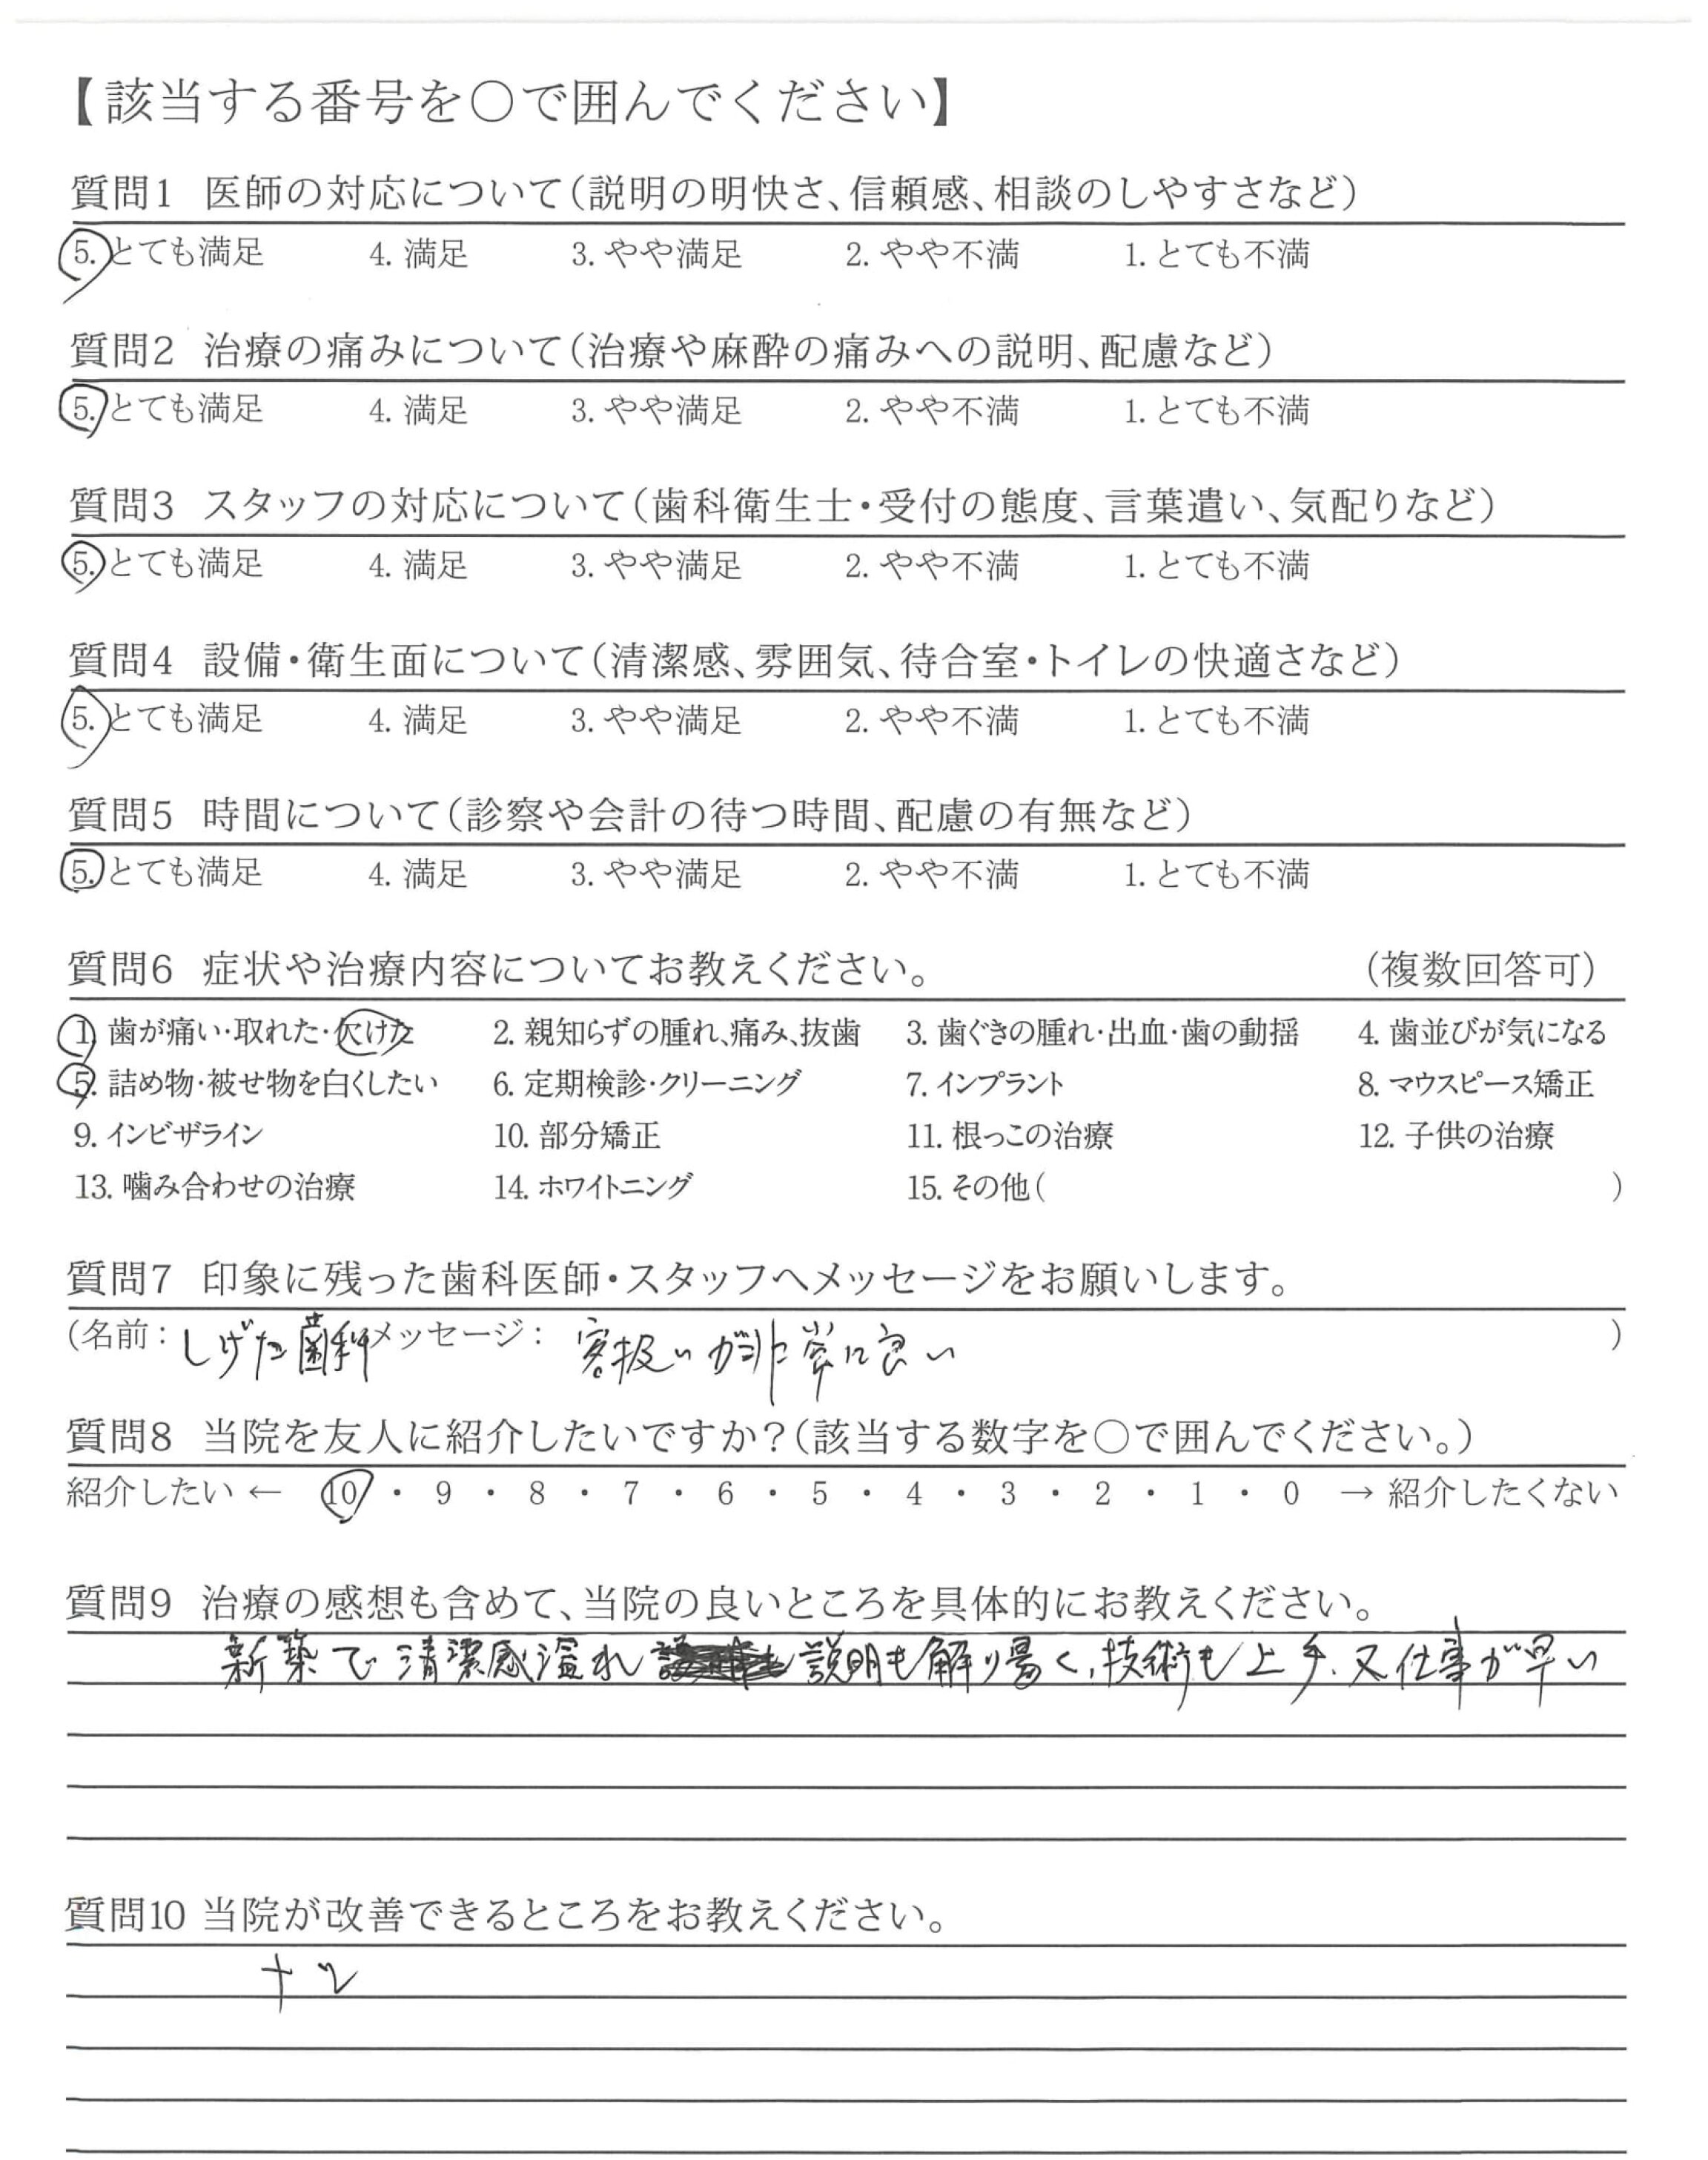 【該当する番号を〇で囲んでください】
質問1 医師の対応について(説明の明快さ、信頼感、相談のしやすさなど)
5. とても満足 4. 満足 3. やや満足 2. やや不満 1. とても不満
質問2 治療の痛みについて(治療や麻酔の痛みへの説明、配慮など)
5. とても満足 4. 満足 3. やや満足 2. やや不満 1. とても不満
質問3 スタッフの対応について(歯科衛生士・受付の態度、言葉遣い、気配りなど)
5. とても満足 4. 満足 3. やや満足 2. やや不満 1. とても不満
質問4 設備・衛生面について(清潔感、雰囲気、待合室・トイレの快適さなど)
5. とても満足 4. 満足 3. やや満足 2. やや不満 1. とても不満
質問5 時間について(診察や会計の待つ時間、配慮の有無など)
5. とても満足 4. 満足 3. やや満足 2. やや不満 1. とても不満
質問6 症状や治療内容についてお教えください。 (複数回答可)
1. 歯が痛い・取れた・欠けた 2. 親知らずの腫れ、痛み、抜歯 3. 歯ぐきの腫れ・出血・歯の動揺 4. 歯並びが気になる
5. 詰め物・被せ物を白くしたい 6. 定期検診・クリーニング 7. インプラント 8. マウスピース矯正
9. インビザライン 10. 部分矯正 11. 根っこの治療 12. 子供の治療
13. 噛み合わせの治療 14. ホワイトニング 15. その他( )
質問7 印象に残った歯科医師・スタッフへメッセージをお願いします。
(名前: しげた歯科 メッセージ: 客扱いが非常に良い )
質問8 当院を友人に紹介したいですか?(該当する数字を〇で囲んでください。)
紹介したい ← 10 ・ 9 ・ 8 ・ 7 ・ 6 ・ 5 ・ 4 ・ 3 ・ 2 ・ 1 ・ 0 → 紹介したくない
質問9 治療の感想も含めて、当院の良いところを具体的にお教えください。
新築で清潔感溢れ 説明も解り易く、技術も上手、又仕事が早い
質問10 当院が改善できるところをお教えください。
ナシ